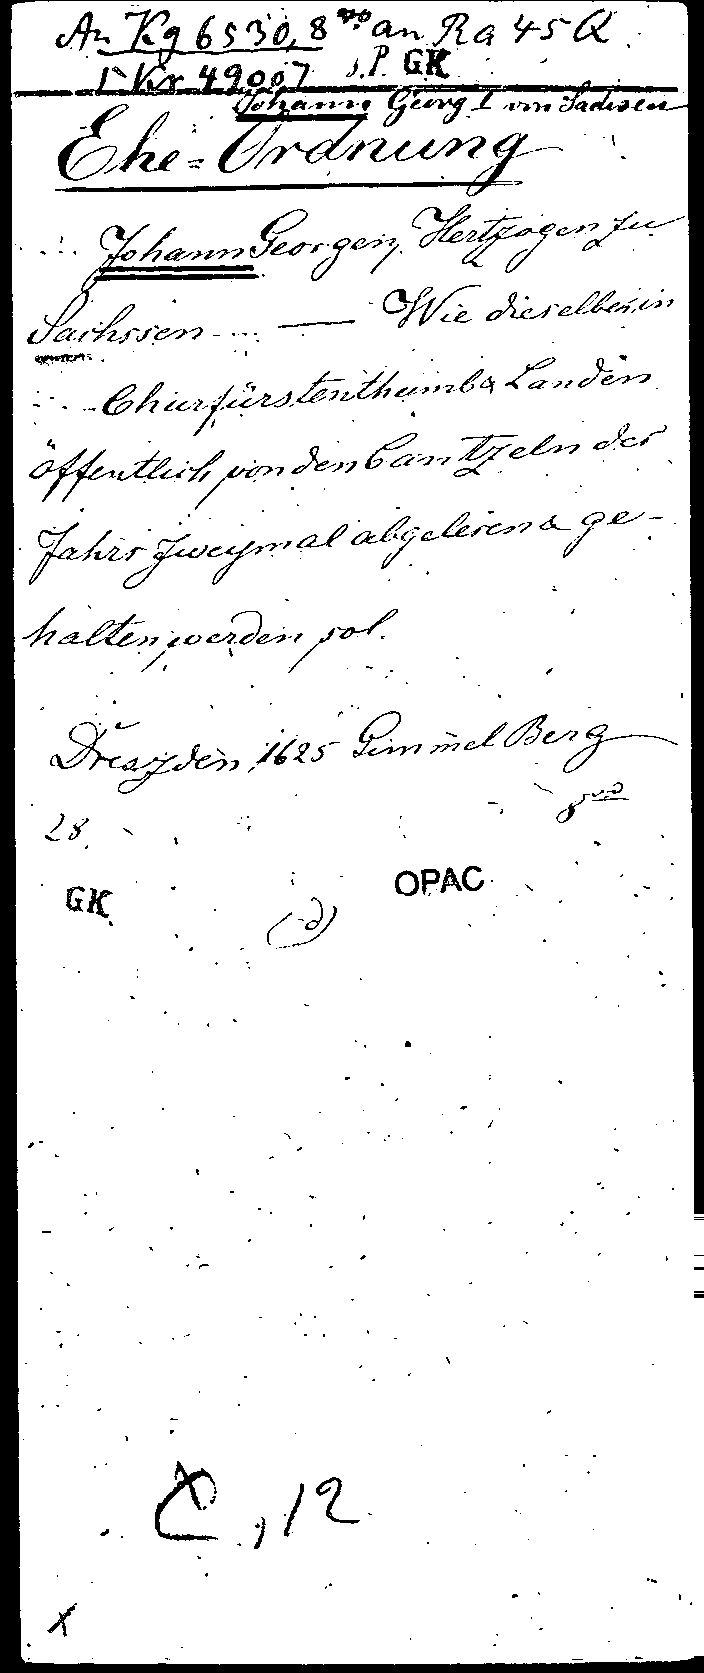 An Kg 6530, 8° an Ra 45 Q
Kr 49007 s.P. GK
Johann Georg I von Sachsen
Ehe-Ordnung
... Johann Georgen, Hertzogen zu
Sachssen ... — Wie dieselbe in
... Churfürstenthumb & Landen
öffentlich von den Cantzeln des
Jahrs zweymal abgelesen & ge-
halten werden sol.
Dreszden, 1625 Gimmel Berg
28. 8vo
GK OPAC
(d)
C, 12
x